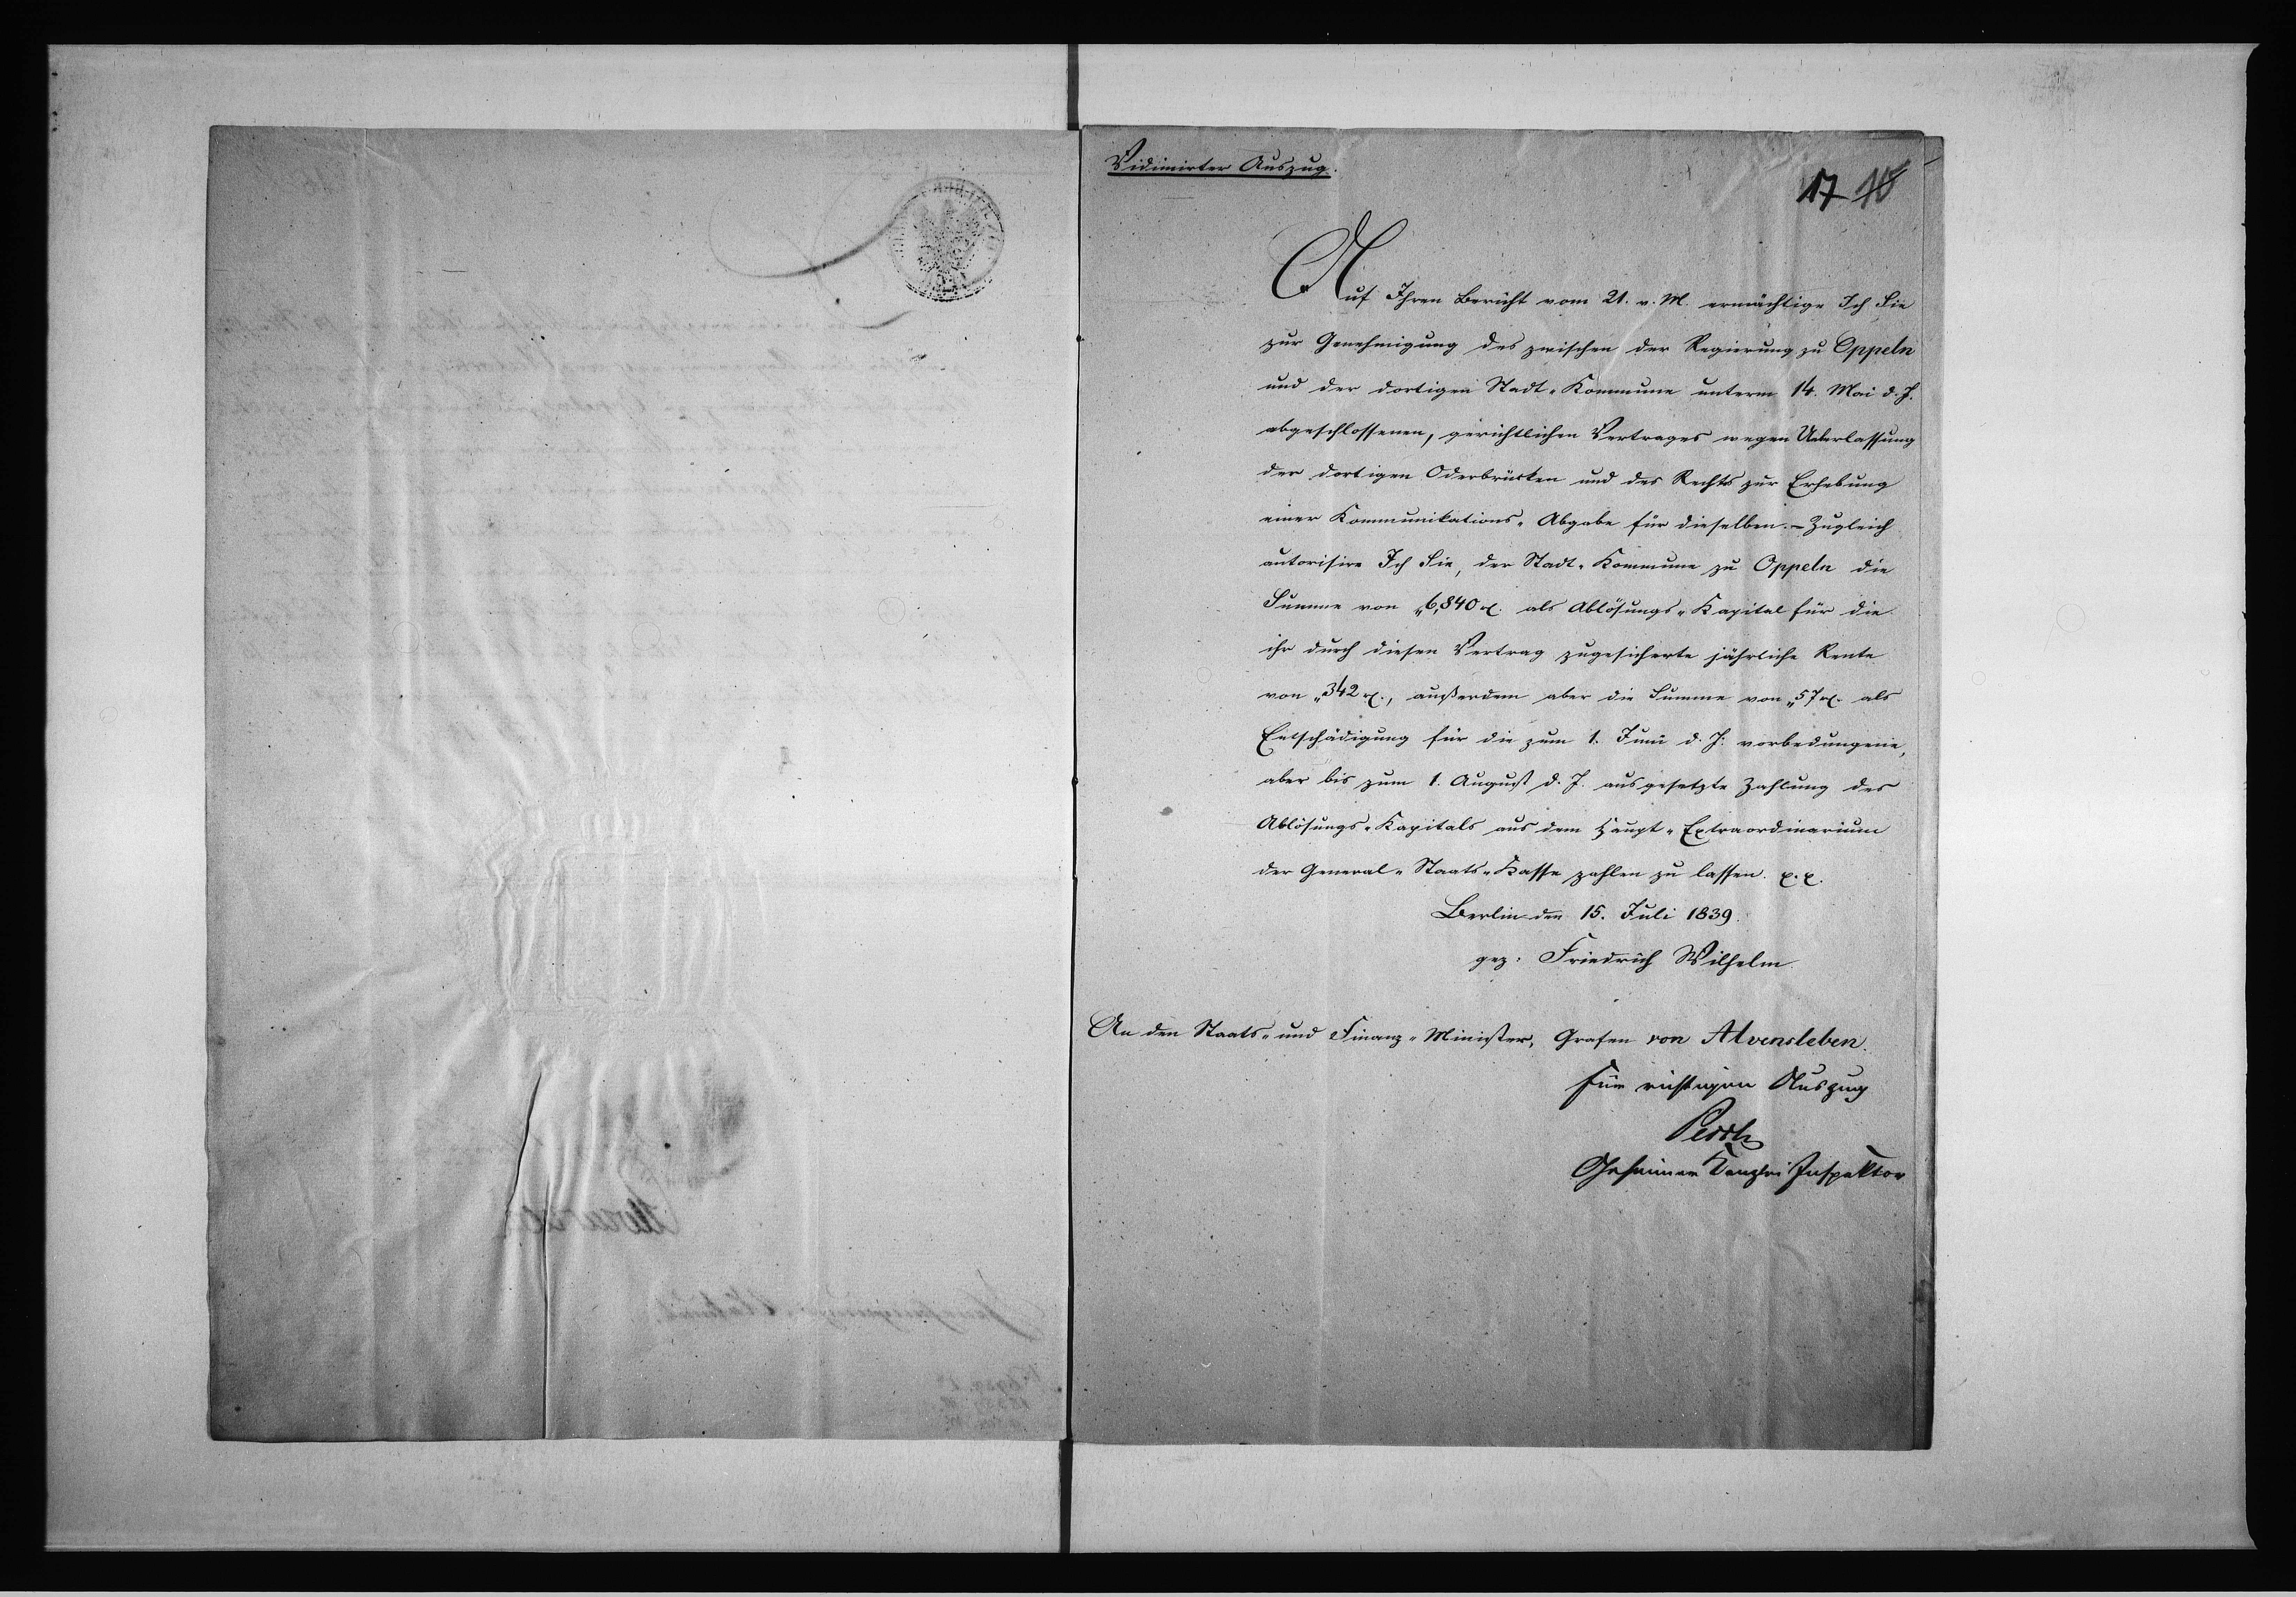 Vidimirter Auszug.
17 10
Auf Ihren Bericht vom 21. v. M. ermächtige Ich Sie
zur Genehmigung des zwischen der Regierung zu Oppeln
und der dortigen Stadt-Kommune unterm 14. Mai d. J.
abgeschlossenen, gerichtlichen Vertrages wegen Ueberlassung
der dortigen Oderbrücken und des Rechts zur Erhebung
einer Kommunikations-Abgabe für dieselben. – Zugleich
autorisire Ich Sie, der Stadt-Kommune zu Oppeln die
Summe von „6,840 rt. als Ablösungs-Kapital für die
ihr durch diesen Vertrag zugesicherte jährliche Rente
von „342 rt., außerdem aber die Summe von „57 rt. als
Entschädigung für die zum 1. Juni d. J. vorbedungene,
aber bis zum 1. August d. J. ausgesetzte Zahlung des
Ablösungs-Kapitals aus dem Haupt-Extraordinarium
der General-Staats-Kasse zahlen zu lassen. p. p.
Berlin den 15. Juli 1839.
gez: Friedrich Wilhelm
An den Staats- und Finanz-Minister, Grafen von Alvensleben.
Für richtigen Auszug
Geheimer Kanzlei Inspektor